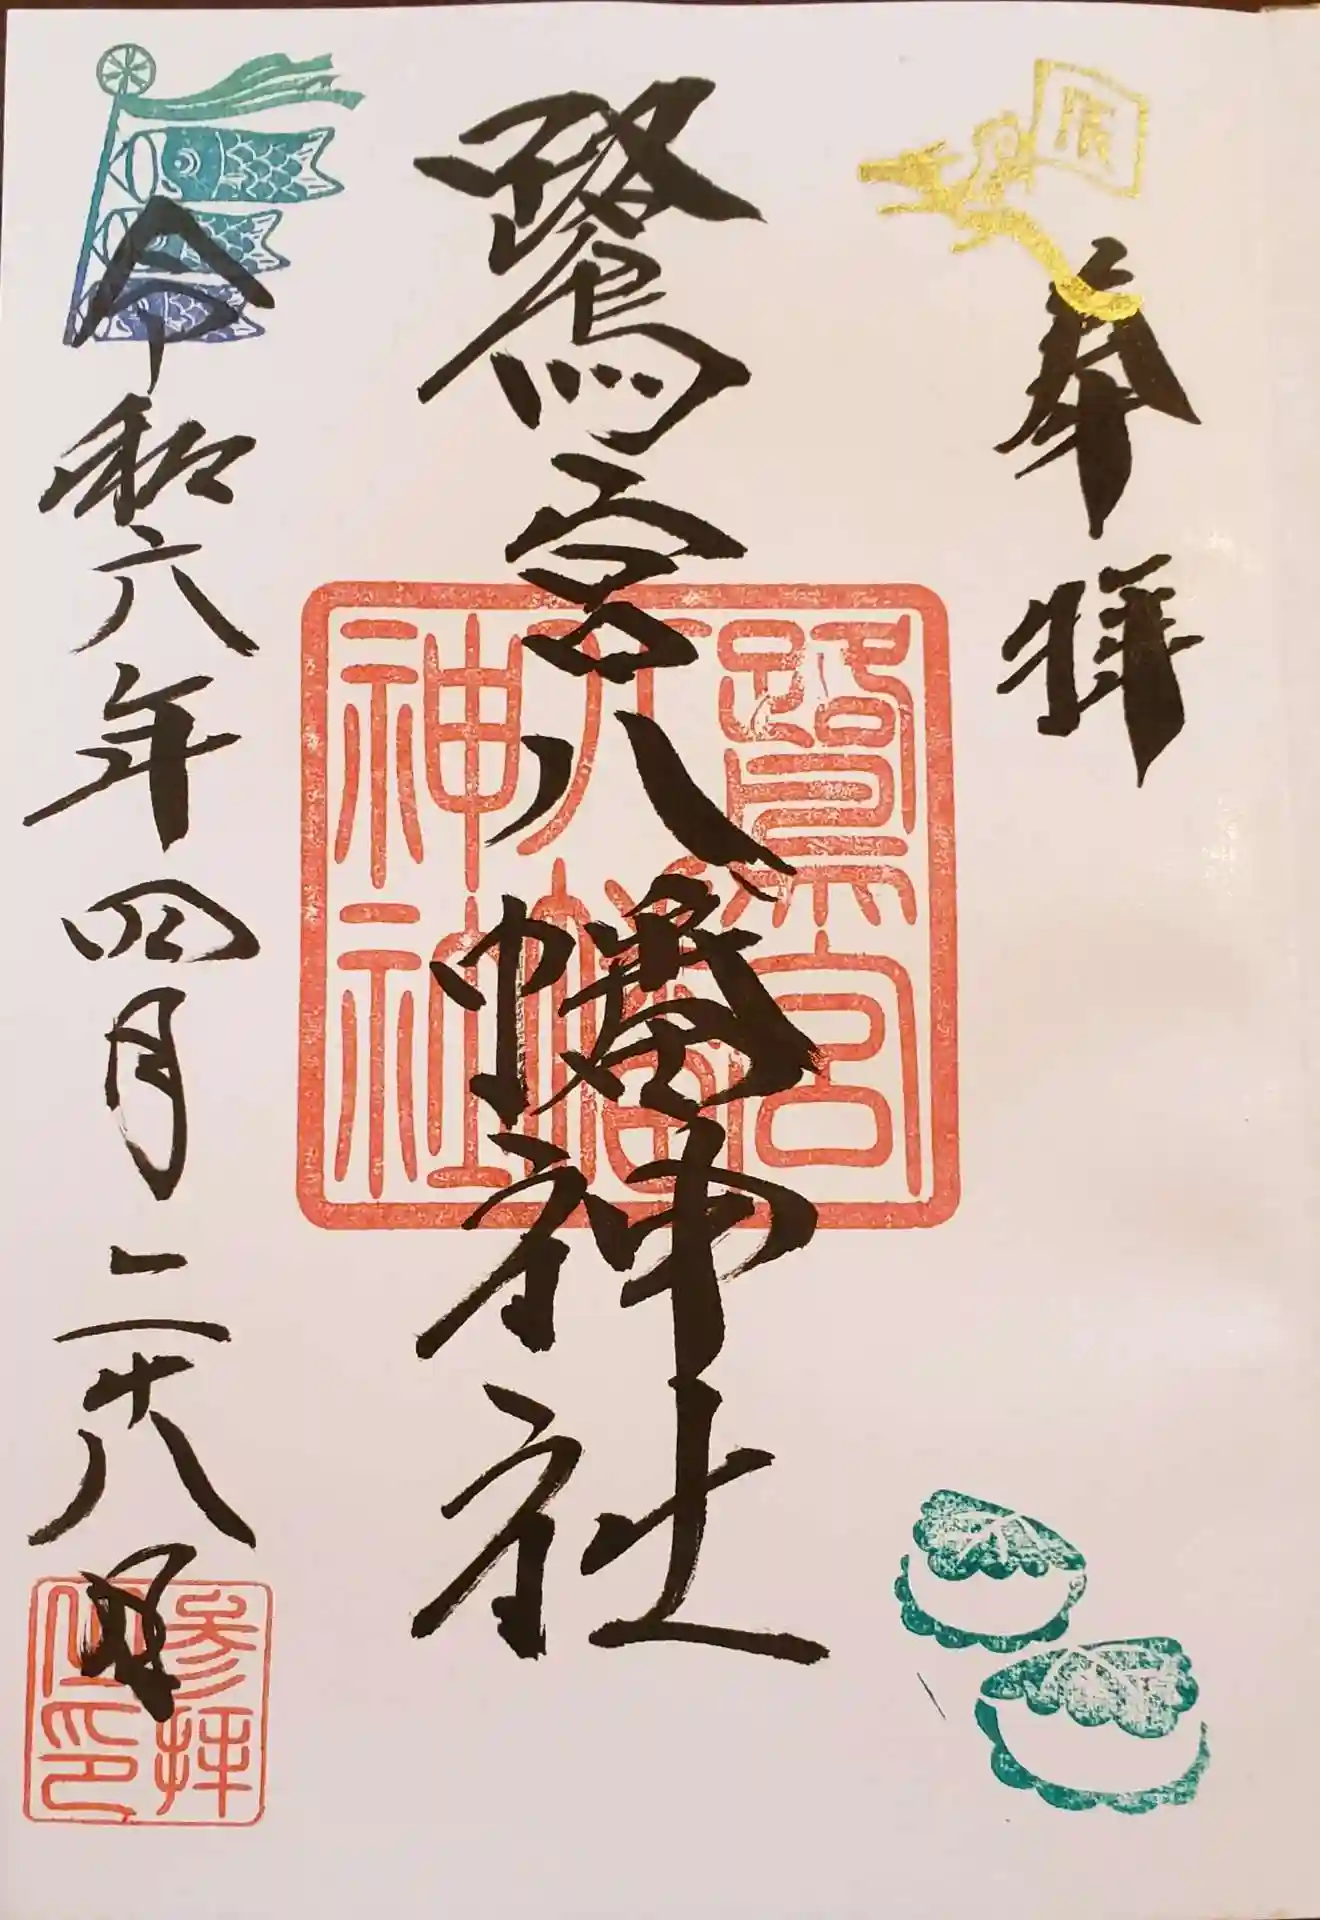 奉拝
鷺宮八幡神社
令和六年四月二十八日
辰
鷺宮
八幡
神社
参拝
之印